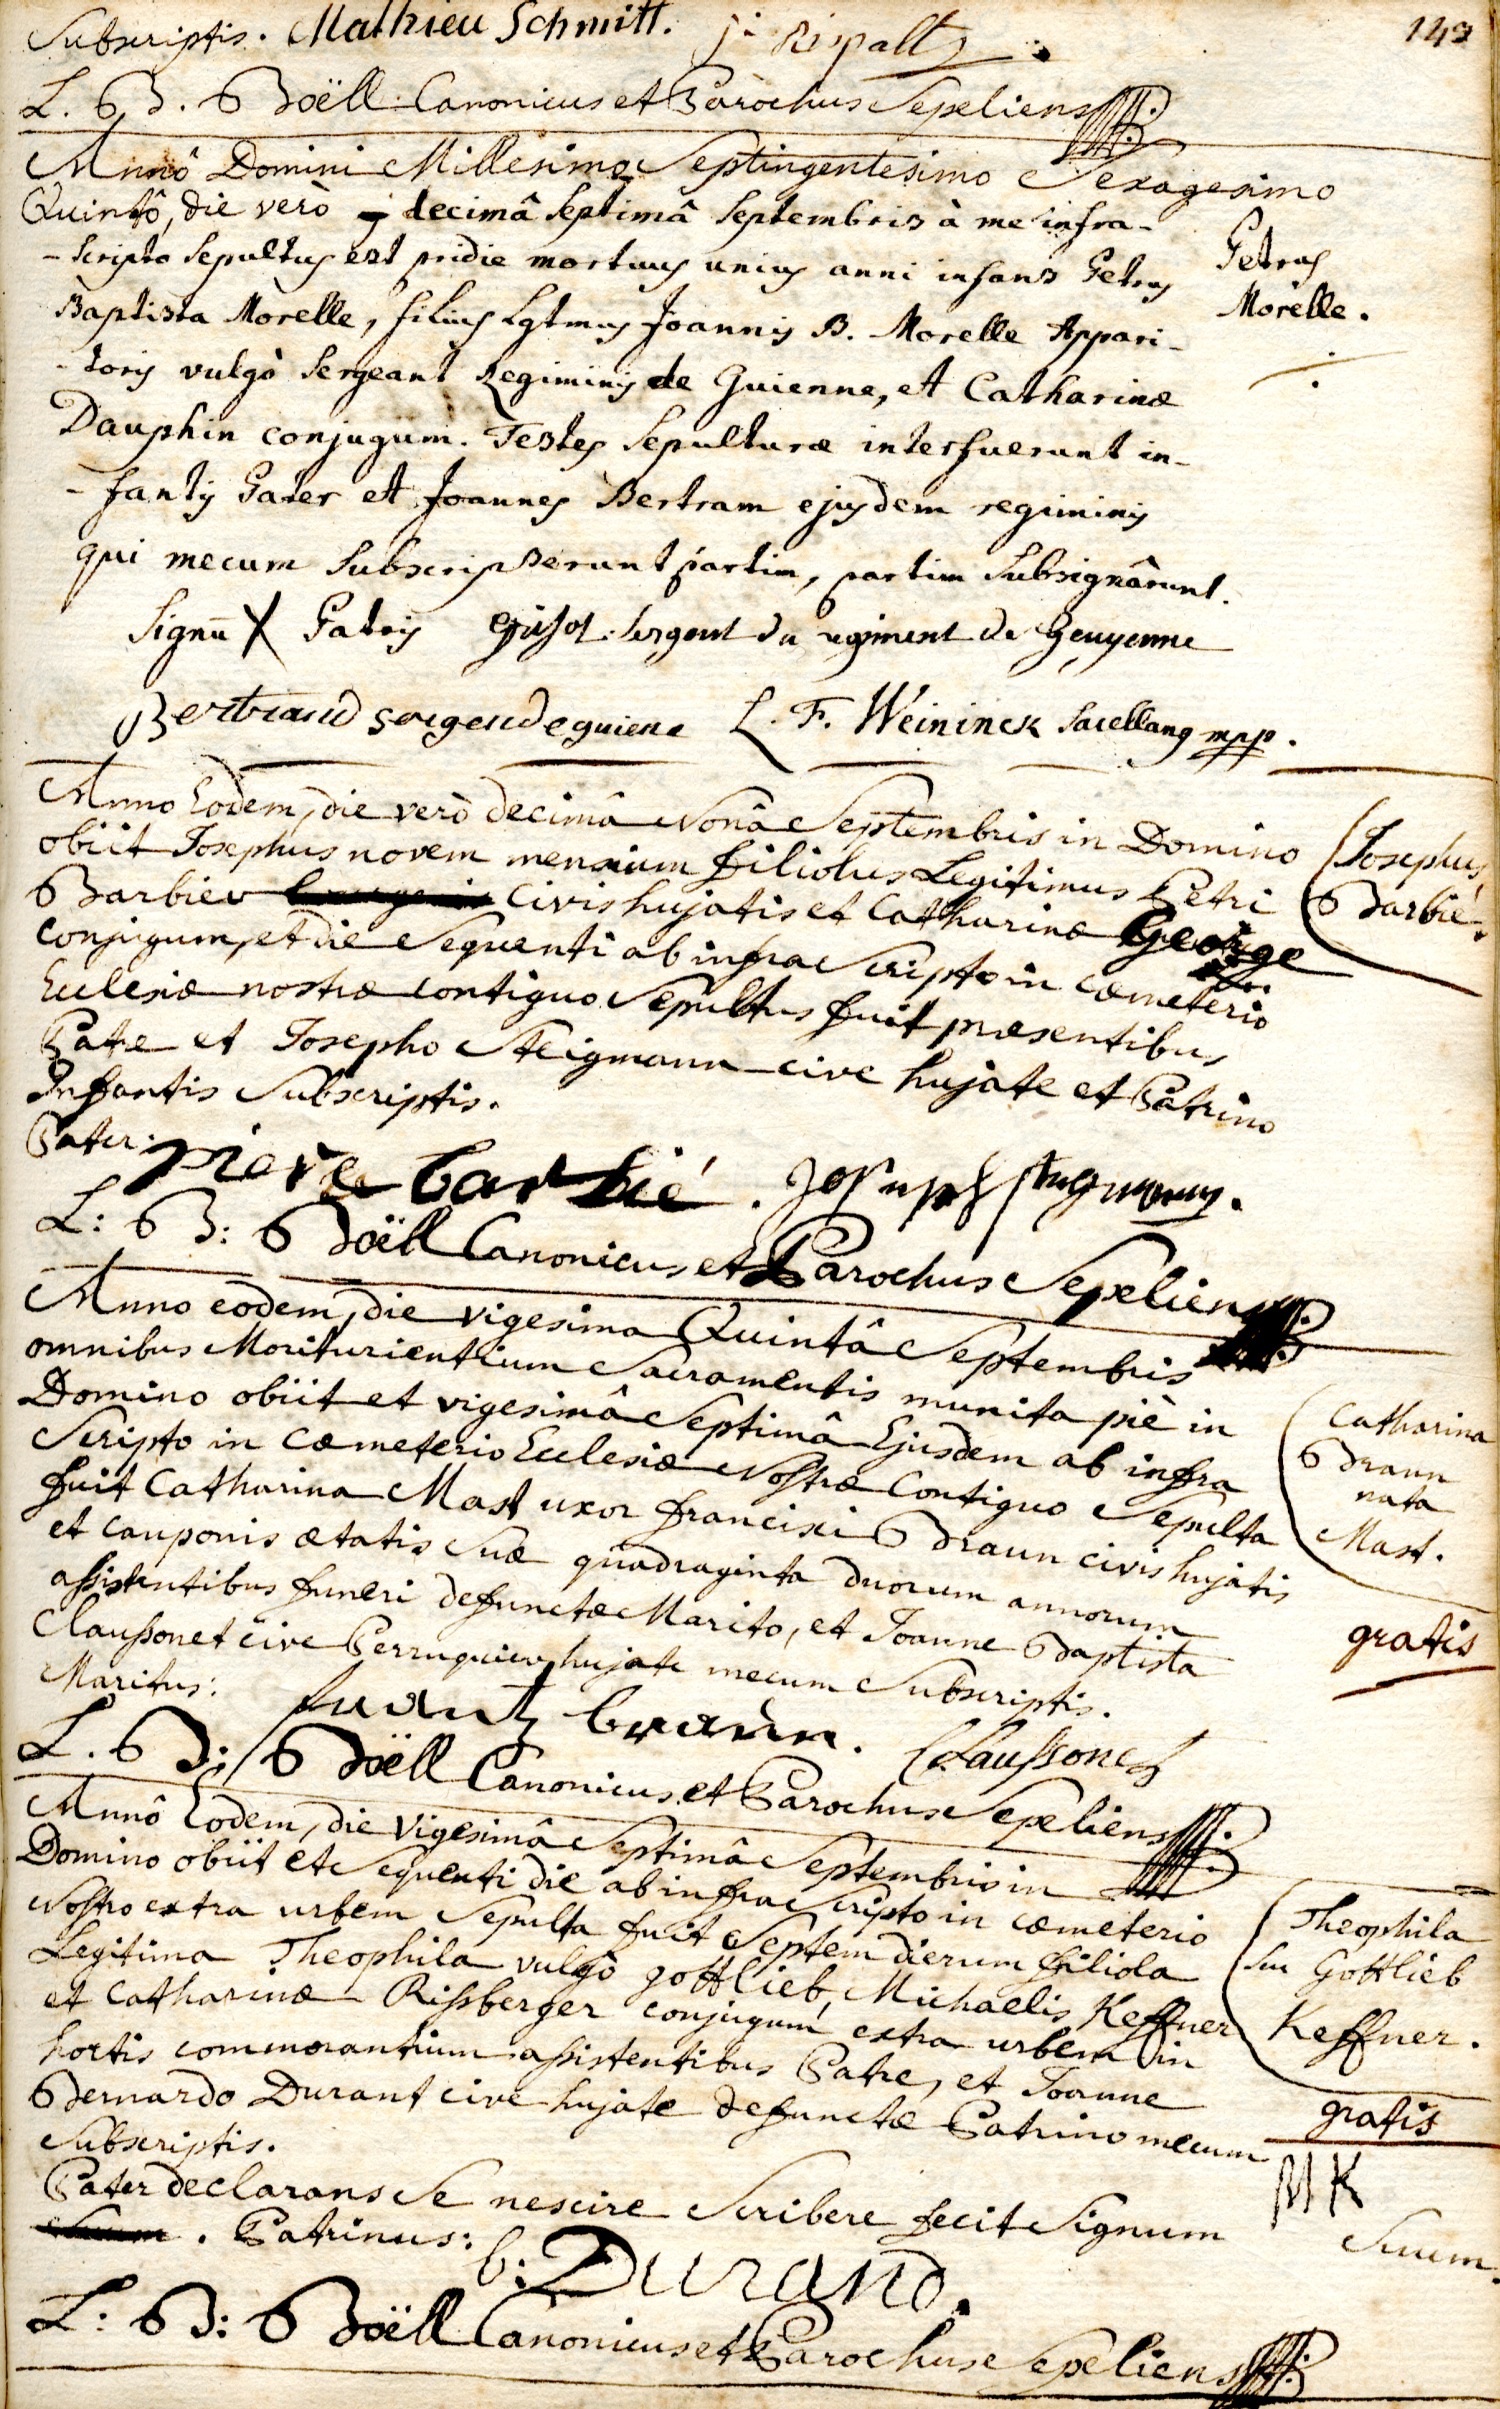 143
Subscriptis. Mathieu Schmitt. j: Rispalt
L. B. Boëll Canonicus et Parochus Sepeliens
Annô Domini Millesimo Septingentesimo Sexagesimo
Quintô, die verò decimâ Septimâ Septembris à me infra-
-scripto Sepultus est pridie mortuus unius anni infans Petrus
Petrus
Baptista Morelle, filius Lgtmus Joannis B. Morelle Appari-
Morelle.
-toris vulgò Sergeant Regiminis de Guienne, et Catharinæ
Dauphin conjugum. Testes Sepulturæ interfuerunt in-
-fantis Pater et Joannes Bertram ejusdem regiminis
qui mecum Subscripserunt partim, partim Subsignârunt.
Signū X Patris Sergent du regiment de Geuyenne
Bertrand sergendeguiene L. F. Weininck Sacellanus mpp.
Anno Eodem, die verò decimâ Nonâ Septembris in Domino
obiit Josephus novem mensium filiolus Legitimus Petri
Josephus
Barbier Civis hujatis et Catharinæ George
Barbié.
conjugum, et die Sequenti ab infra Scripto in cœmeterio
Ecclesiæ nostræ contiguo Sepultus fuit præsentibus
Patre et Josepho Steigmann cive hujate et Patrino
Infantis Subscriptis.
Pater: piere barbié. Joseph
L: B: Boëll Canonicus et Parochus Sepeliens
Anno eodem, die vigesima Quintâ Septembris
omnibus Moriturientium Sacramentis munita piè in
Domino obiit et vigesimâ Septimâ Ejusdem ab infra
Catharina
Scripto in Cœmeterio Ecclesiæ Nostræ Contiguo Sepulta
Braun
nata
fuit Catharina Mast uxor francisci Braun civis hujatis
Mast.
et cauponis ætatis Suæ quadraginta duorum annorum
assistentibus funeri defunctæ Marito, et Joanne Baptista
gratis
Claussonet cive Perruquier hujate mecum Subscriptis.
Maritus: frantz braun. Claussonet
L. B: Boëll Canonicus et Parochus Sepeliens
Annô Eodem, die Vigesimâ Septimâ Septembris in
Domino obiit et Sequenti die ab infra Scripto in cœmeterio
Nostro extra urbem Sepulta fuit Septem dierum filiola
Theophila
Legitima Theophila vulgò gottlieb, Michaelis Keffner
seu Gottlieb
et Catharinæ Rissberger conjugum extra urbem in
Keffner.
hortis commorantium assistentibus Patre, et Joanne
Bernardo Durant cive hujate defunctæ Patrino mecum
gratis
Subscriptis.
Pater declarans Se nescire Scribere fecit Signum MK Suum.
Patrinus: b: Durand.
L: B: Boëll Canonicus et Parochus Sepeliens